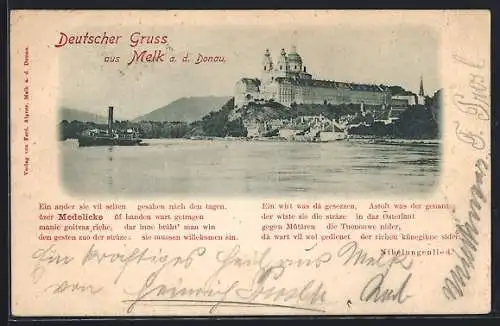 Deutscher Gruss
aus Melk a. d. Donau.
Verlag von Ferd. Algner, Melk a. d. Donau.
Ein ander sie vil selten gesâhen nâch den tagen.
ûzer Medelicke ûf handen wart getragen
manic goltvaz rîche, dar inne brâht' man wîn
den gesten zuo der strâze: sie muosen willekomen sin.
Ein wirt was dâ gesezzen, Astolt was der genant,
der wîste sie die strâze in daz Osterlant
gegen Mûtâren die Tuonouwe nider,
dâ wart vil wol gedienet der rîchen künegînne sider.
Nibelungenlied.
Ein kräftiges Heil aus Melk
von